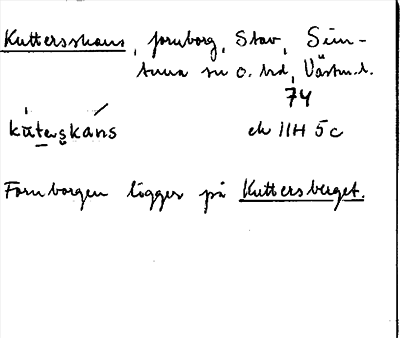 Kuttersskans, fornborg, Stav, Sim-
tuna sn o. hd, Västm.l.
74
kùterskáns ek 11H 5c
Fornborgen ligger på Kuttersberget.